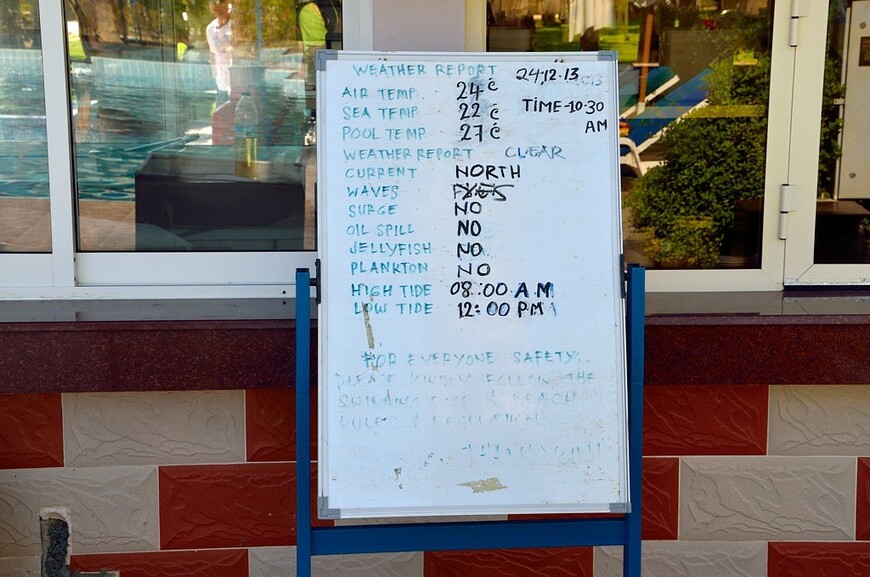 WEATHER REPORT 24.12.13
AIR TEMP 24°C
SEA TEMP 22°C TIME-10:30
POOL TEMP 27°C AM
WEATHER REPORT CLEAR
CURRENT NORTH
WAVES
SURGE NO
OIL SPILL NO
JELLYFISH NO
PLANKTON NO
HIGH TIDE 08:00 AM
LOW TIDE 12:00 PM
FOR EVERYONE SAFETY..
PLEASE KINDLY FOLLOW THE
SWIMMING POOL & BEACH
RULES &